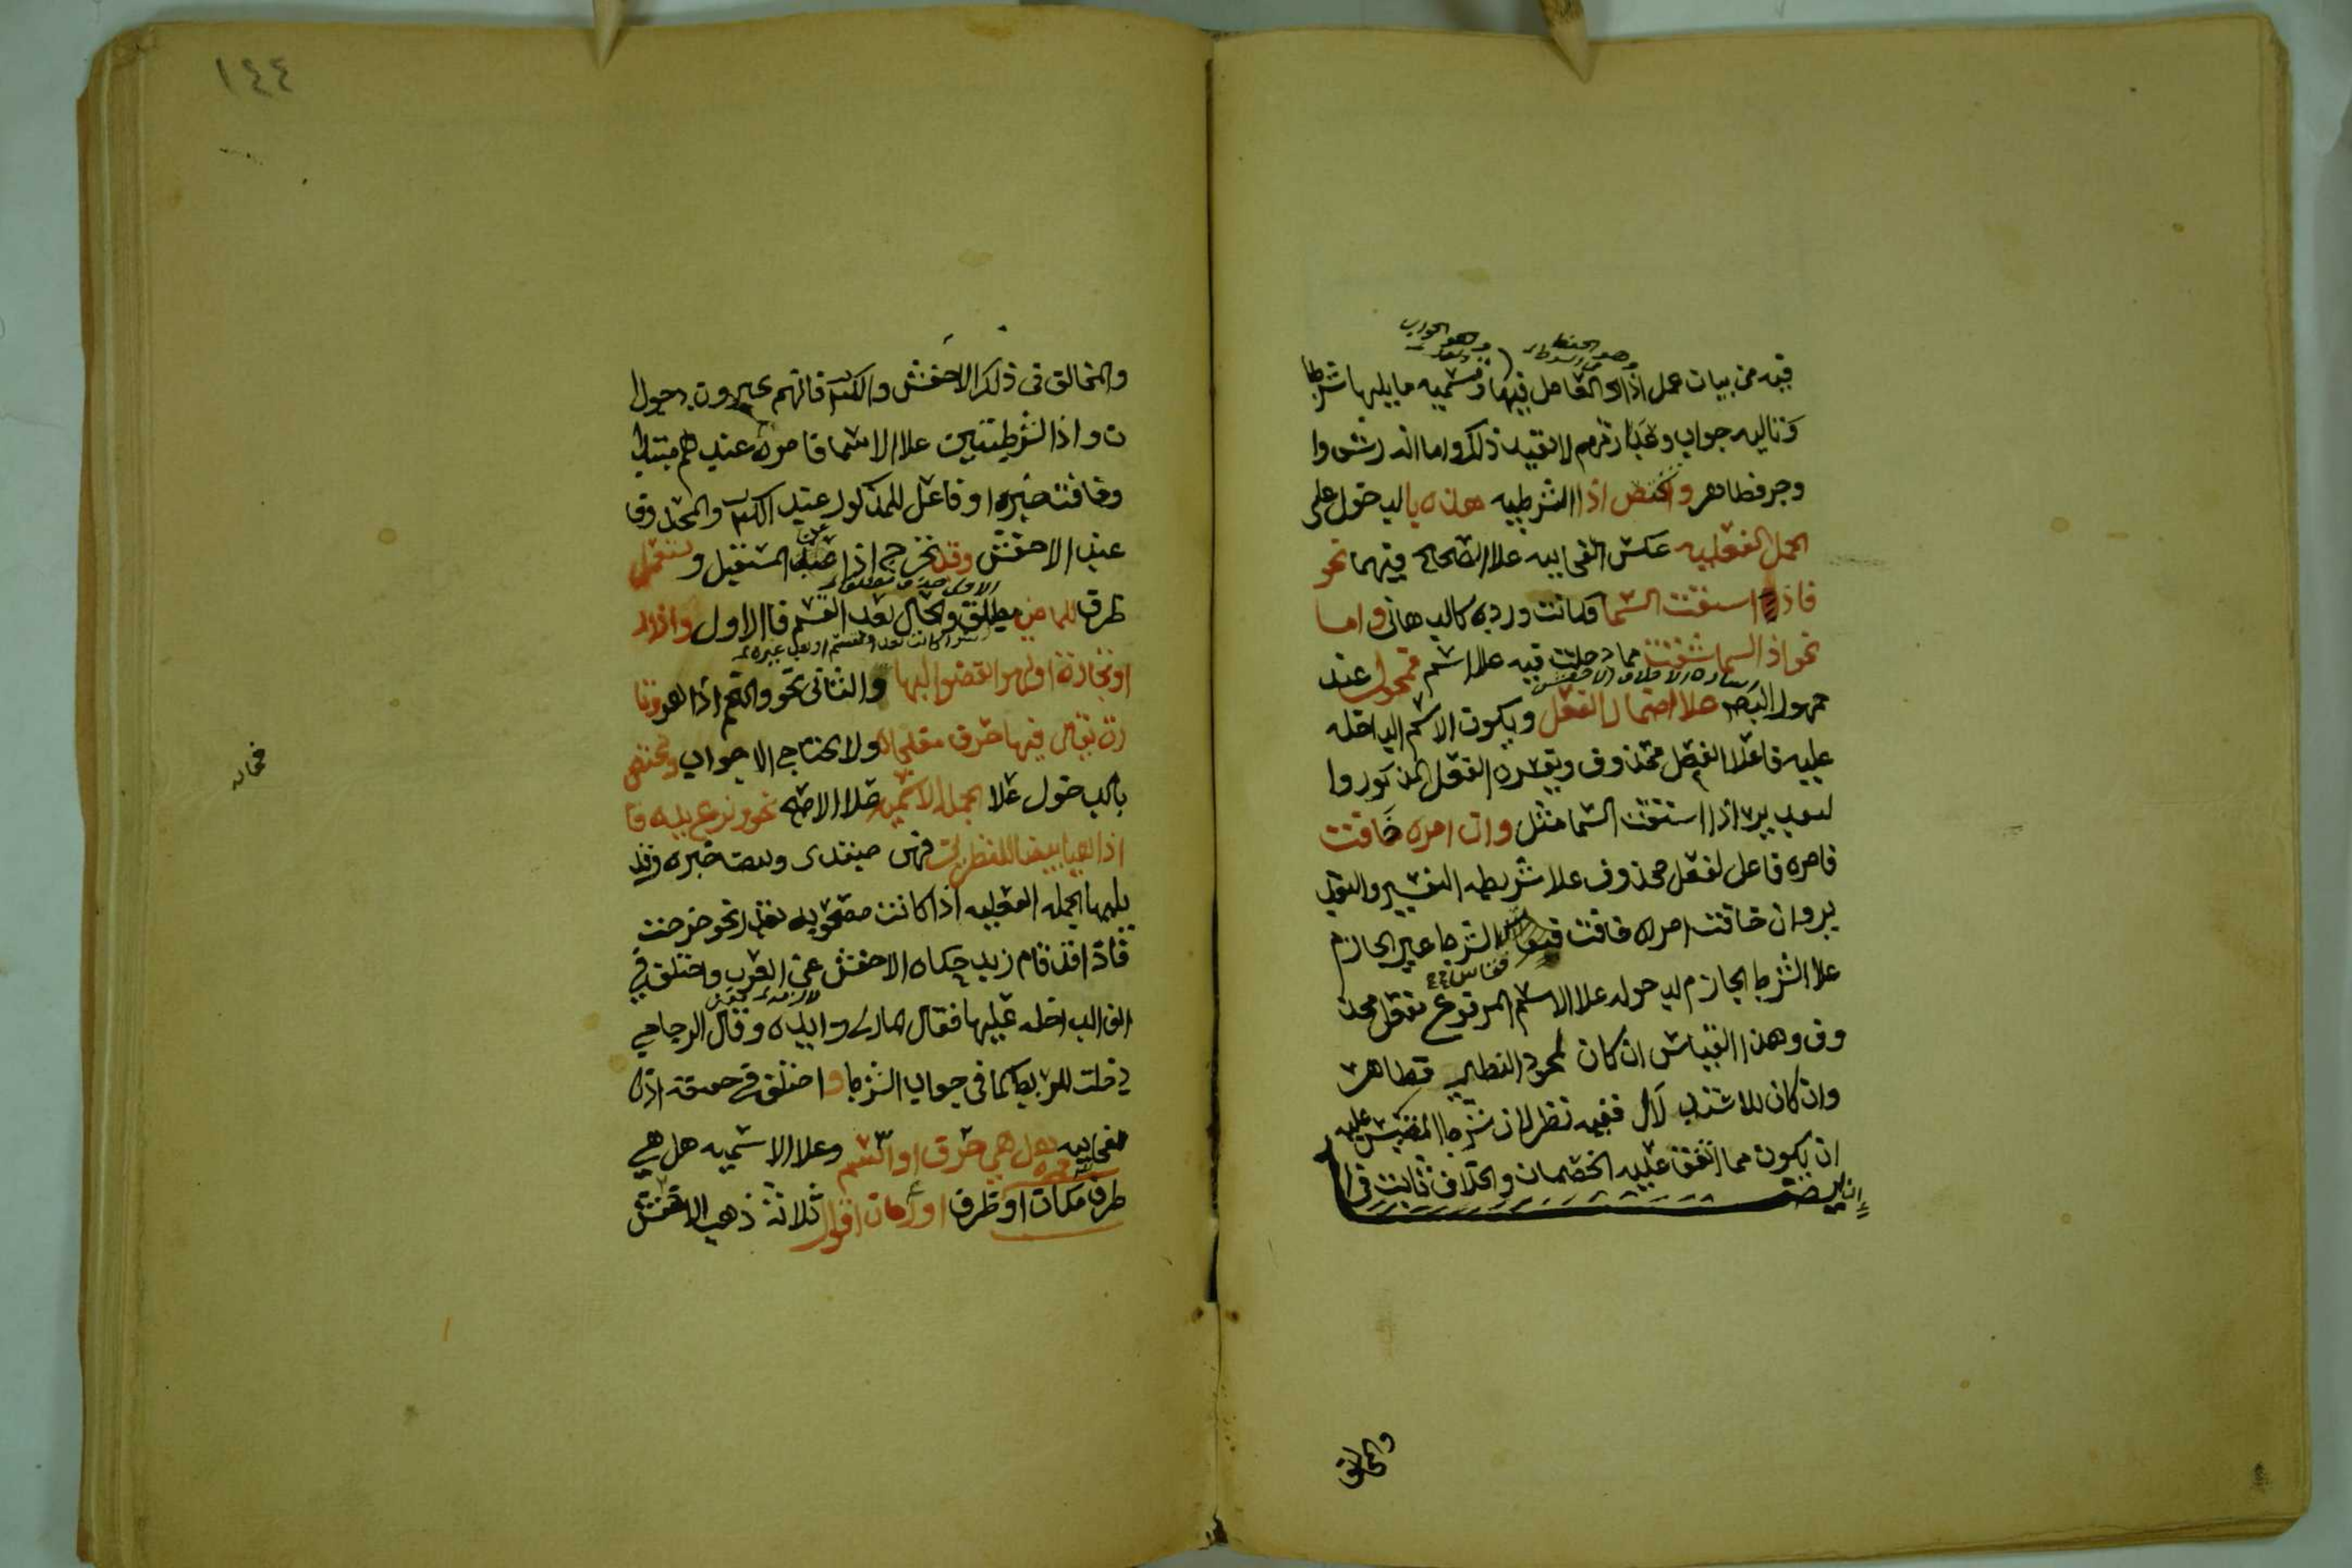 فيه من بيان عمل اذا والعامل فيها وتسميه ما يليها شرطا
وتاليه جواب وعبارتهم لا تفيد ذلك واما انه رشوا
وجر فظاهر واختص اذا الشرطيه هذه بالدخول على
الجمل الفعليه عكس الفجاييه علا الصحاح فيهما نحو
فاذا انشقت السما فكانت ورده كالدهان واما
نحو اذ السما انشقت مما دخلت فيه علا اسم فمحمول عند
جمهور البصر علا اضمار الفعل ويكون الاسم الداخله
عليه فاعلا لفعل محذوف ويفسره الفعل المذكور وا
لتقدير اذا انشقت السما مثل وان امره خافت
فامره فاعل لفعل محذوف علا شريطه التفسير والتقد
ير وان خافت امراه خافت فقاس الشرط غير الجازم
علا الشرط الجازم لدخوله علا الاسم المرفوع بفعل محذ
وف وهذا القياس ان كان لمجرد التنظير فظاهر
وان كان للاستدلال ففيه نظر لان شرط المقيس عليه
ان يكون مما اتفق عليه الخصمان والخلاف ثابت في ا
ان ايضا
والمخالف
١٤٤
والمخالف في ذلك الاخفش والكف فانهم يجيزون دخول ا
ن واذا الشرطيتين علا الاسما فامره عندهم مبتدا
وخافت خبره او فاعل للمذكور عند الكف والمحذوف
عند الاخفش وقد تخرج اذا عن المستقبل وتستعمل
ظرف للماضي مطلق وللحال بعد القسم فالاول واذا را
او تجارة او لهوا انفضوا اليها والثاني نحو والنجم اذا هوى وتا
رة تجي فيها حرف مفاجاة ولا تحتاج الا جواب وتختص
بالدخول علا الجمله الاسميه علا الاصح نحو ونزع يده فا
اذا هي بيضا للناظرين فهي مبتدى وبيضا خبره وقد
يليها الجمله الفعليه اذا كانت مصحوبه بقد نحو خرجت
فاذا قد قام زيد حكاه الاخفش عن العرب واختلف في
الفا الداخله عليها فقال المازني زايده وقال الزجاجي
دخلت للربط كما في جواب الشرط واختلف في حقيقة اذا
الفجاييه هل هي حرف او اسم وعلا الاسميه هل هي
ظرف مكان او ظرف او زمان اقول ثلاثة ذهب الاخفش